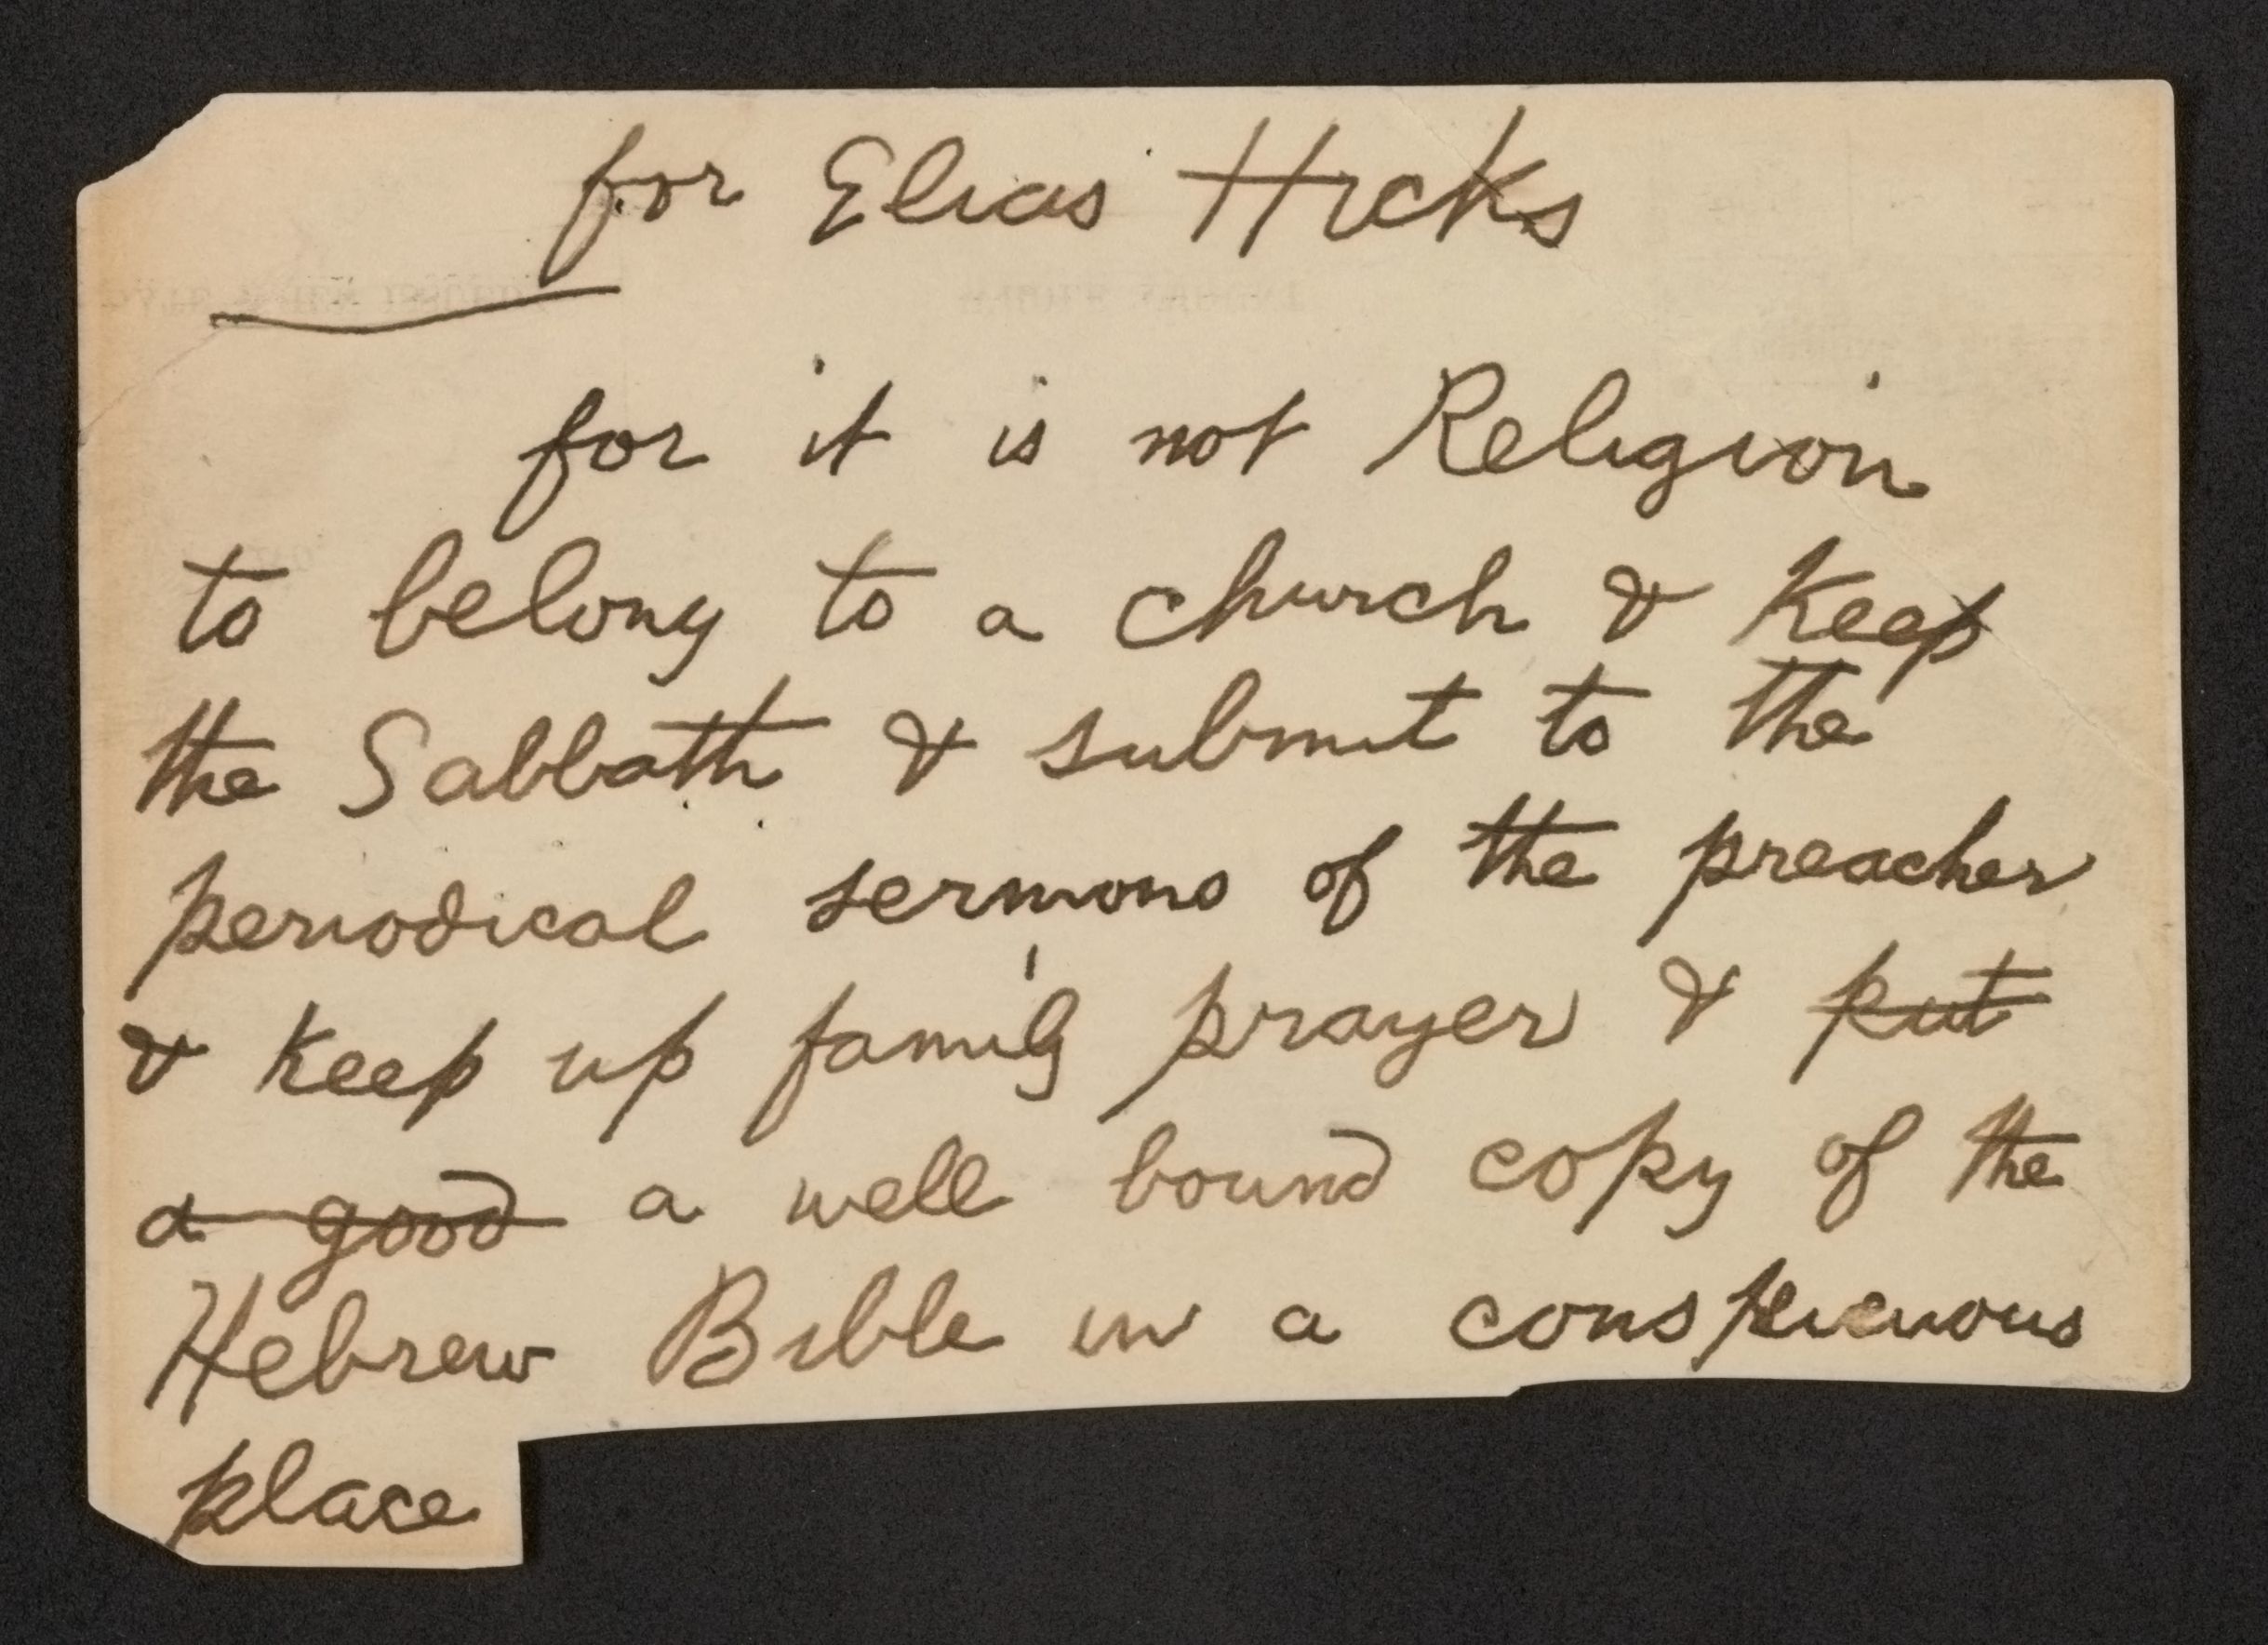 for Elias Hicks
for it is not Religion
to belong to a church & keep
the Sabbath & submit to the
periodical sermons of the preacher
& keep up family prayer & put
a good a well bound copy of the
Hebrew Bible in a conspicuous
place